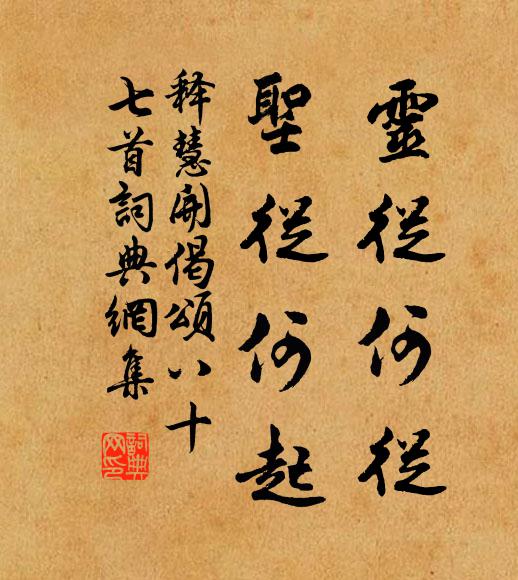 靈從何從
聖從何起
释慧開偈頌八十
七首詞典網集
詞典
网印